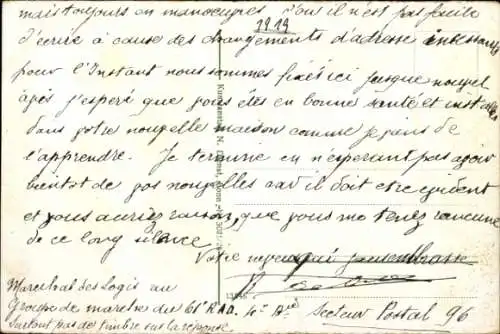 mais toujours en manoeuvres d'où il n'est pas facile
1919
d'écrire à cause des changements d'adresse incessants
pour l'Instant nous sommes fixés ici jusque nouvel
après j'esperé que vous êtes en bonne santé et installés
dans votre nouvelle maison comme je viens de
l'apprendre. Je termine en n'esperant pas avoir
bientot de vos nouvelles car il doit etre evident
et vous auriez raison, que vous me tenez rancune
de ce long silence
Votre neveu qui vous embrasse
Marechal des Logis au
Groupe de marche du 61e RAD. 4e Aie Secteur Postal 96
Surtout pas de timbre sur la reponse